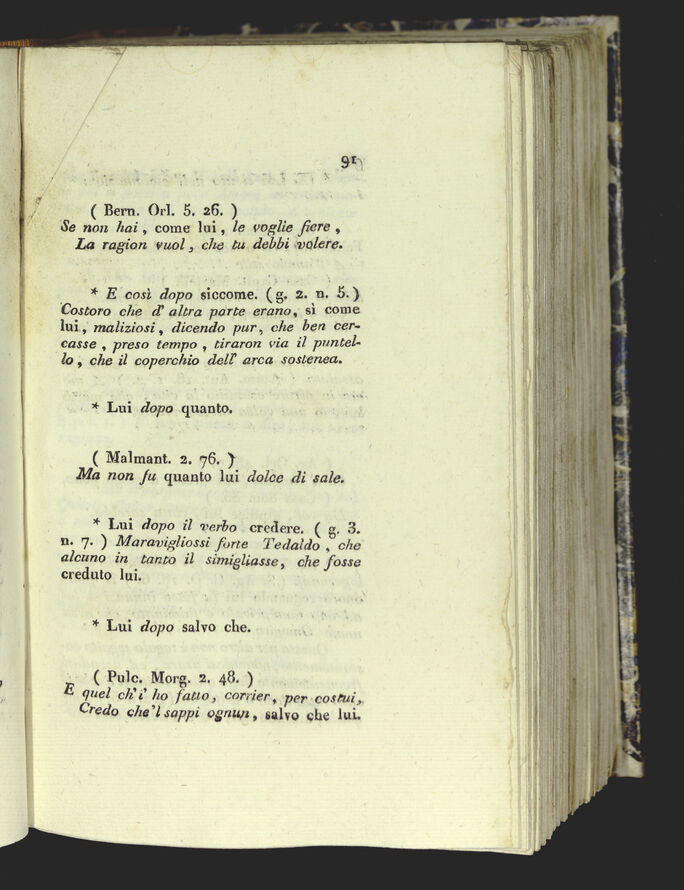 91
( Bern. Orl. 5. 26. )
Se non hai, come lui, le voglie fiere,
La ragion vuol, che tu debbi volere.
* E così dopo siccome. ( g. 2. n. 5. )
Costoro che d' altra parte erano, sì come
lui, maliziosi, dicendo pur, che ben cer-
casse, preso tempo, tiraron via il puntel-
lo, che il coperchio dell' arca sostenea.
* Lui dopo quanto.
( Malmant. 2. 76. )
Ma non fu quanto lui dolce di sale.
* Lui dopo il verbo credere. ( g. 3.
n. 7. ) Maravigliossi forte Tedaldo, che
alcuno in tanto il simigliasse, che fosse
creduto lui.
* Lui dopo salvo che.
( Pulc. Morg. 2. 48. )
E quel ch'i' ho fatto, corrier, per costui,
Credo che'l sappi ognun, salvo che lui.